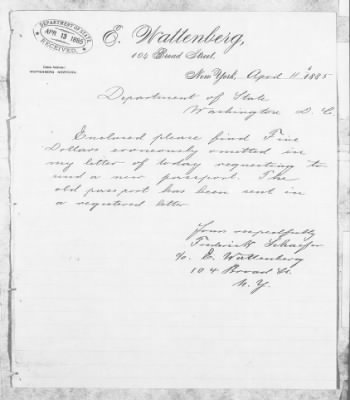 DEPARTMENT OF STATE
APR 13 1885
RECEIVED.
E. Wattenberg,
104 Broad Street.
New York, April 11th 1885
Department of State
Washington D. C.
Enclosed please find Five
Dollars erroneously omitted in
my letter of today requesting to
send a new passport. The
old passport has been sent in
a registered letter
Yours respectfully
Frederick Schaefer
c/o. E. Wattenberg
104 Broad St.
N. Y.